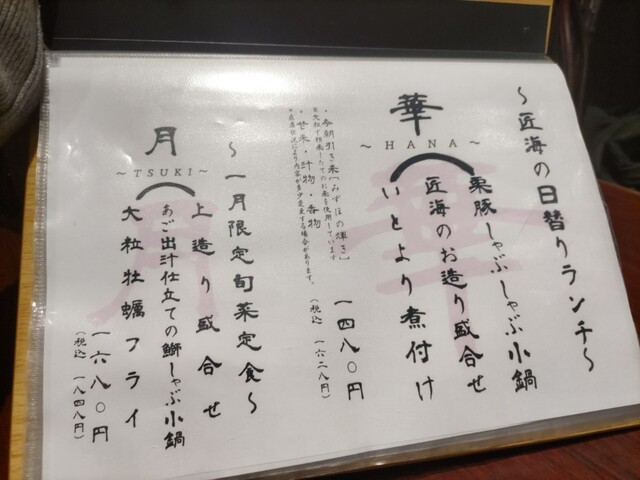 ～匠海の日替りランチ～
華
～HANA～
栗豚しゃぶしゃぶ小鍋
匠海のお造り盛合せ
いとより煮付け
一四八〇円
(税込 一六二八円)
・今朝引き米「みずほの輝き」
・甘米・汁物・香物
～一月限定旬菜定食～
月
～TSUKI～
上造り盛合せ
あご出汁仕立ての鰤しゃぶ小鍋
大粒牡蠣フライ
一六八〇円
(税込 一八四八円)